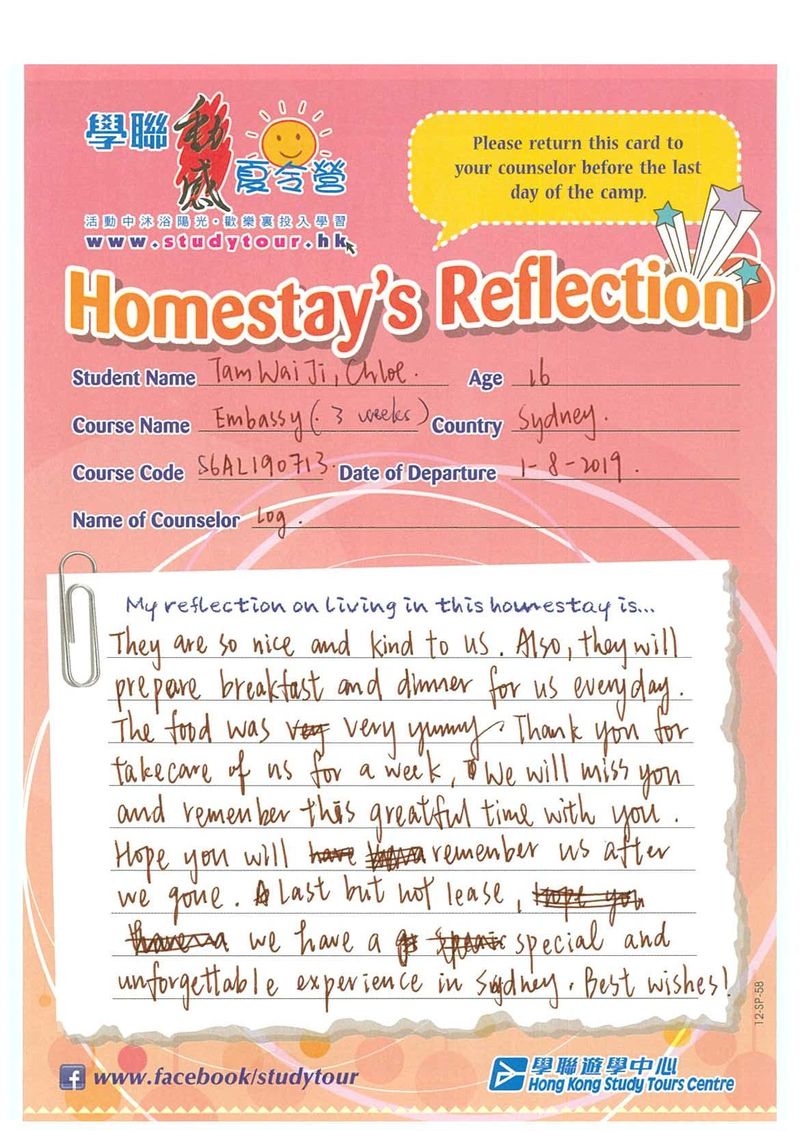 學聯 動感 夏令營
活動中沐浴陽光·歡樂裏投入學習
www.studytour.hk
Please return this card to
your counselor before the last
day of the camp.
Homestay's Reflection
Student Name Tam Wai Ji, Chloe. Age 16
Course Name Embassy (. 3 weeks) Country Sydney.
Course Code S6AL190713. Date of Departure 1-8-2019.
Name of Counselor Log.
My reflection on living in this homestay is...
They are so nice and kind to us. Also, they will
prepare breakfast and dinner for us everyday.
The food was very very yummy. Thank you for
takecare of us for a week, We will miss you
and remember this greatful time with you.
Hope you will have remember us after
we gone. Last but not lease, hope you
have a we have a special and
unforgettable experience in Sydney. Best wishes!
12-SP-58
www.facebook/studytour
學聯遊學中心
Hong Kong Study Tours Centre